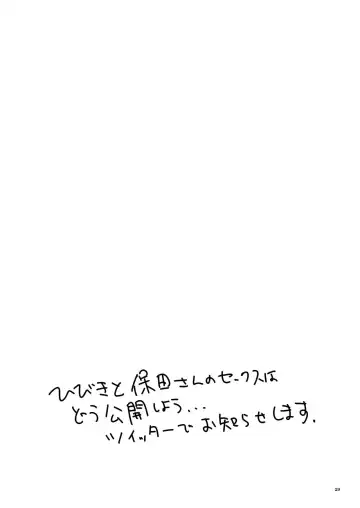 ひびきと保田さんのセックスは
どう公開しよう...
ツイッターでお知らせします.
23